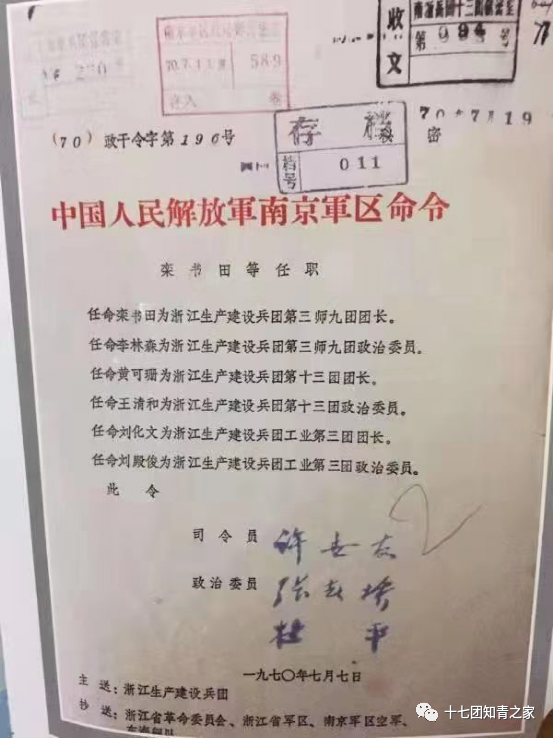 南京军区政治部
70.7.11
589
存入
收文
浙江兵团十三团
第 994 号
(70) 政干令字第196号
存档
档号
011
70年7月19
密
中国人民解放軍南京軍区命令
栾书田等任职
任命栾书田为浙江生产建设兵团第三师九团团长。
任命李林森为浙江生产建设兵团第三师九团政治委员。
任命黄可珊为浙江生产建设兵团第十三团团长。
任命王清和为浙江生产建设兵团第十三团政治委员。
任命刘化文为浙江生产建设兵团工业第三团团长。
任命刘殿俊为浙江生产建设兵团工业第三团政治委员。
此令
司令员 许世友
政治委员 张春桥
杜平
一九七〇年七月七日
主送：浙江生产建设兵团
抄送：浙江省革命委员会、浙江省军区、南京军区空军、
东海舰队
十七团知青之家